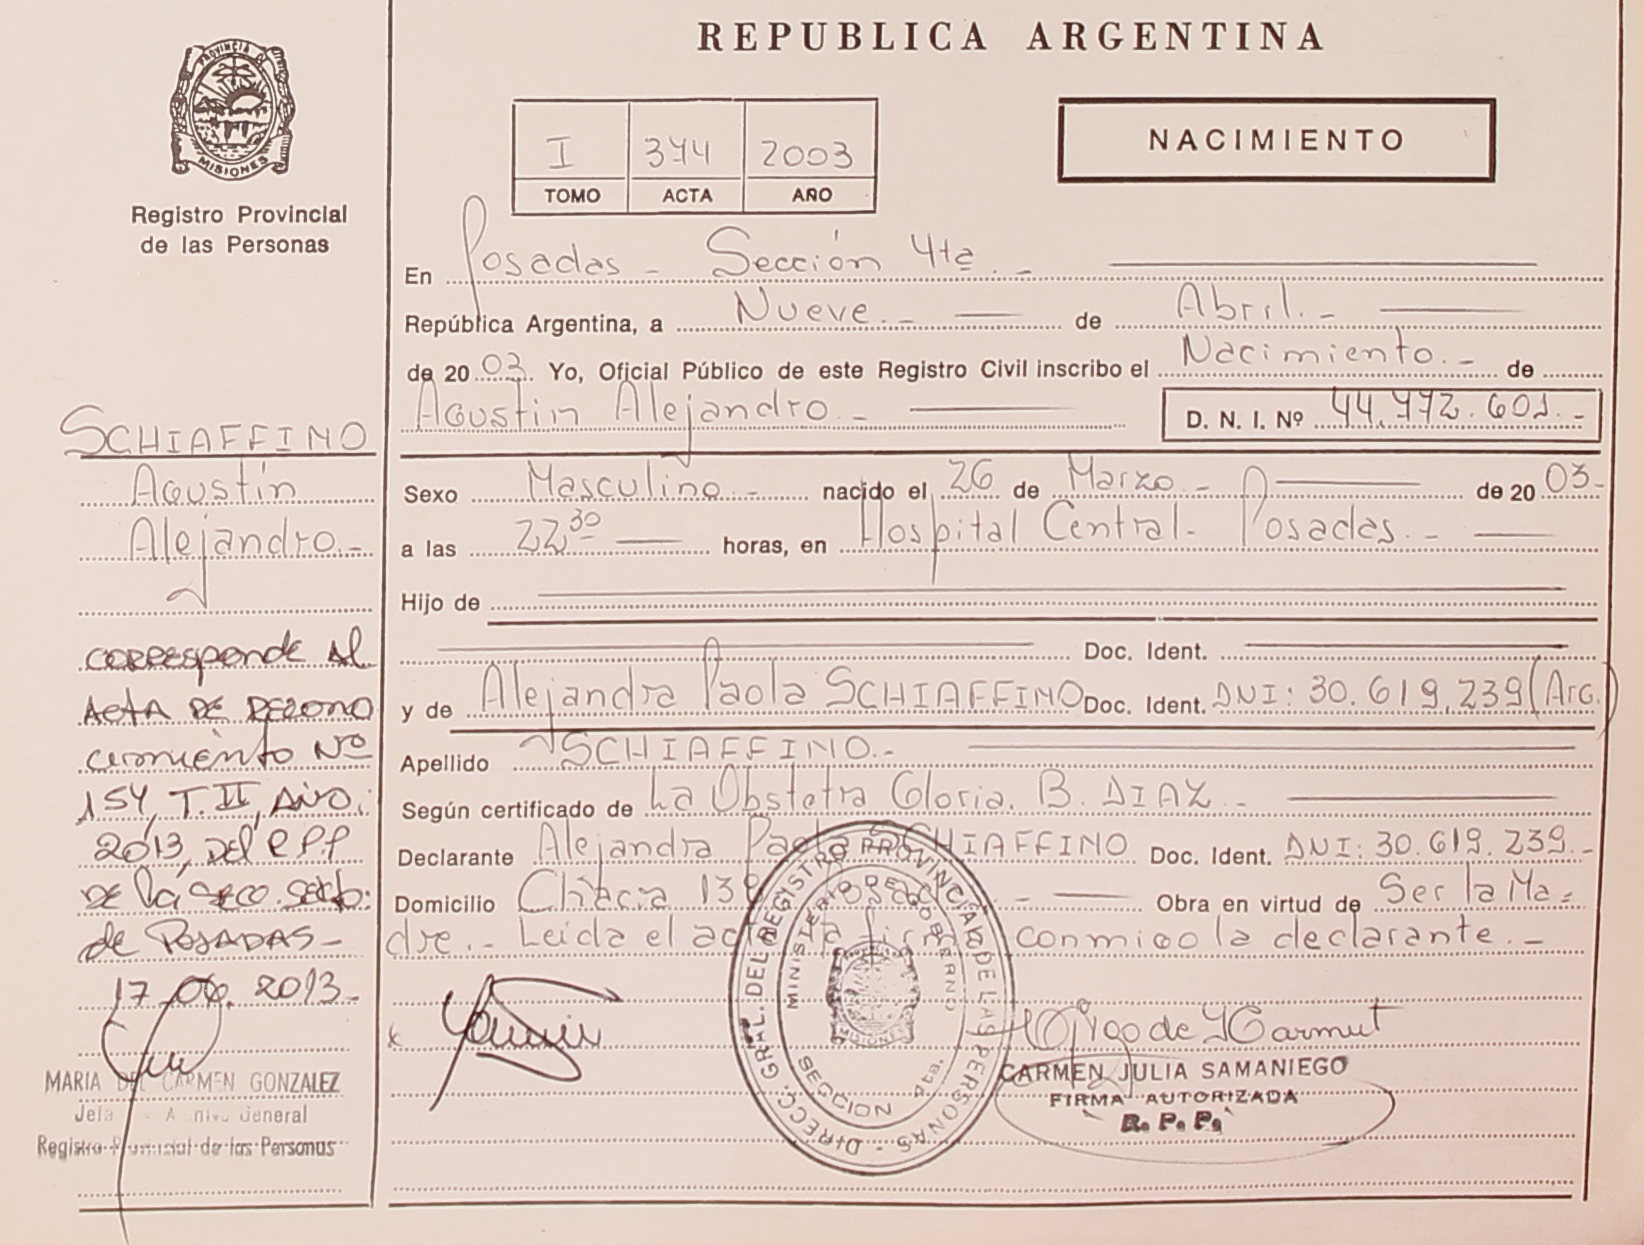 REPUBLICA ARGENTINA
PROVINCIA DE
MISIONES
Registro Provincial
de las Personas
I 344 2003
TOMO ACTA AÑO
NACIMIENTO
En Posadas - Sección 4ta. -
República Argentina, a Nueve. - de Abril. -
de 2003. Yo, Oficial Público de este Registro Civil inscribo el Nacimiento. - de
Agustin Alejandro. - D. N. I. Nº 44.772.601. -
Sexo Masculino. - nacido el 26 de Marzo - de 2003.-
a las 22 30 horas, en Hospital Central - Posadas. -
Hijo de
Doc. Ident.
y de Alejandra Paola SCHIAFFINO Doc. Ident. DNI: 30.619.239 (Arg.)
Apellido SCHIAFFINO.-
Según certificado de La Obstetra Gloria. B. DIAZ. -
Declarante Alejandra Paola SCHIAFFINO Doc. Ident. DNI: 30.619.239. -
Domicilio Chacra 13 Posadas - Obra en virtud de Ser la Ma-
dre. - Leida el acta la firma conmigo la declarante. -
SCHIAFFINO
Agustín
Alejandro. -
corresponde al
ACTA DE RECONO
cimiento Nº
154, T. II, Año:
2013, Del RPP
de la Secc. Sexta:
de POSADAS -
17.06.2013-
MARIA DEL CARMEN GONZALEZ
Jefa Archivo General
Registro Provincial de las Personas
DIRECC. GRAL. DEL REGISTRO PROVINCIAL DE LAS PERSONAS
MINISTERIO DE GOBIERNO
MISIONES
SECCION 4ta.
CARMEN JULIA SAMANIEGO
FIRMA AUTORIZADA
R. P. P.